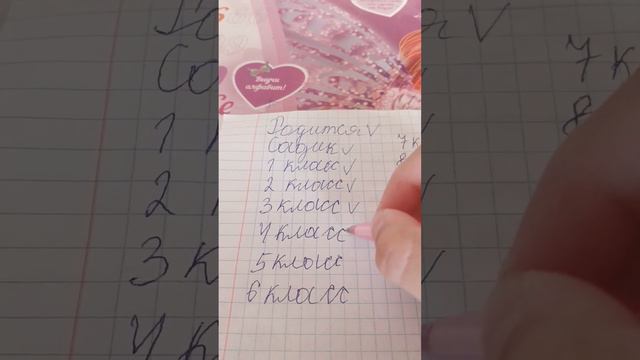 Выучи
алфавит!
Родится✓
Садик✓
1 класс✓
2 класс✓
3 класс✓
4 класс
5 класс
6 класс
7 к
8